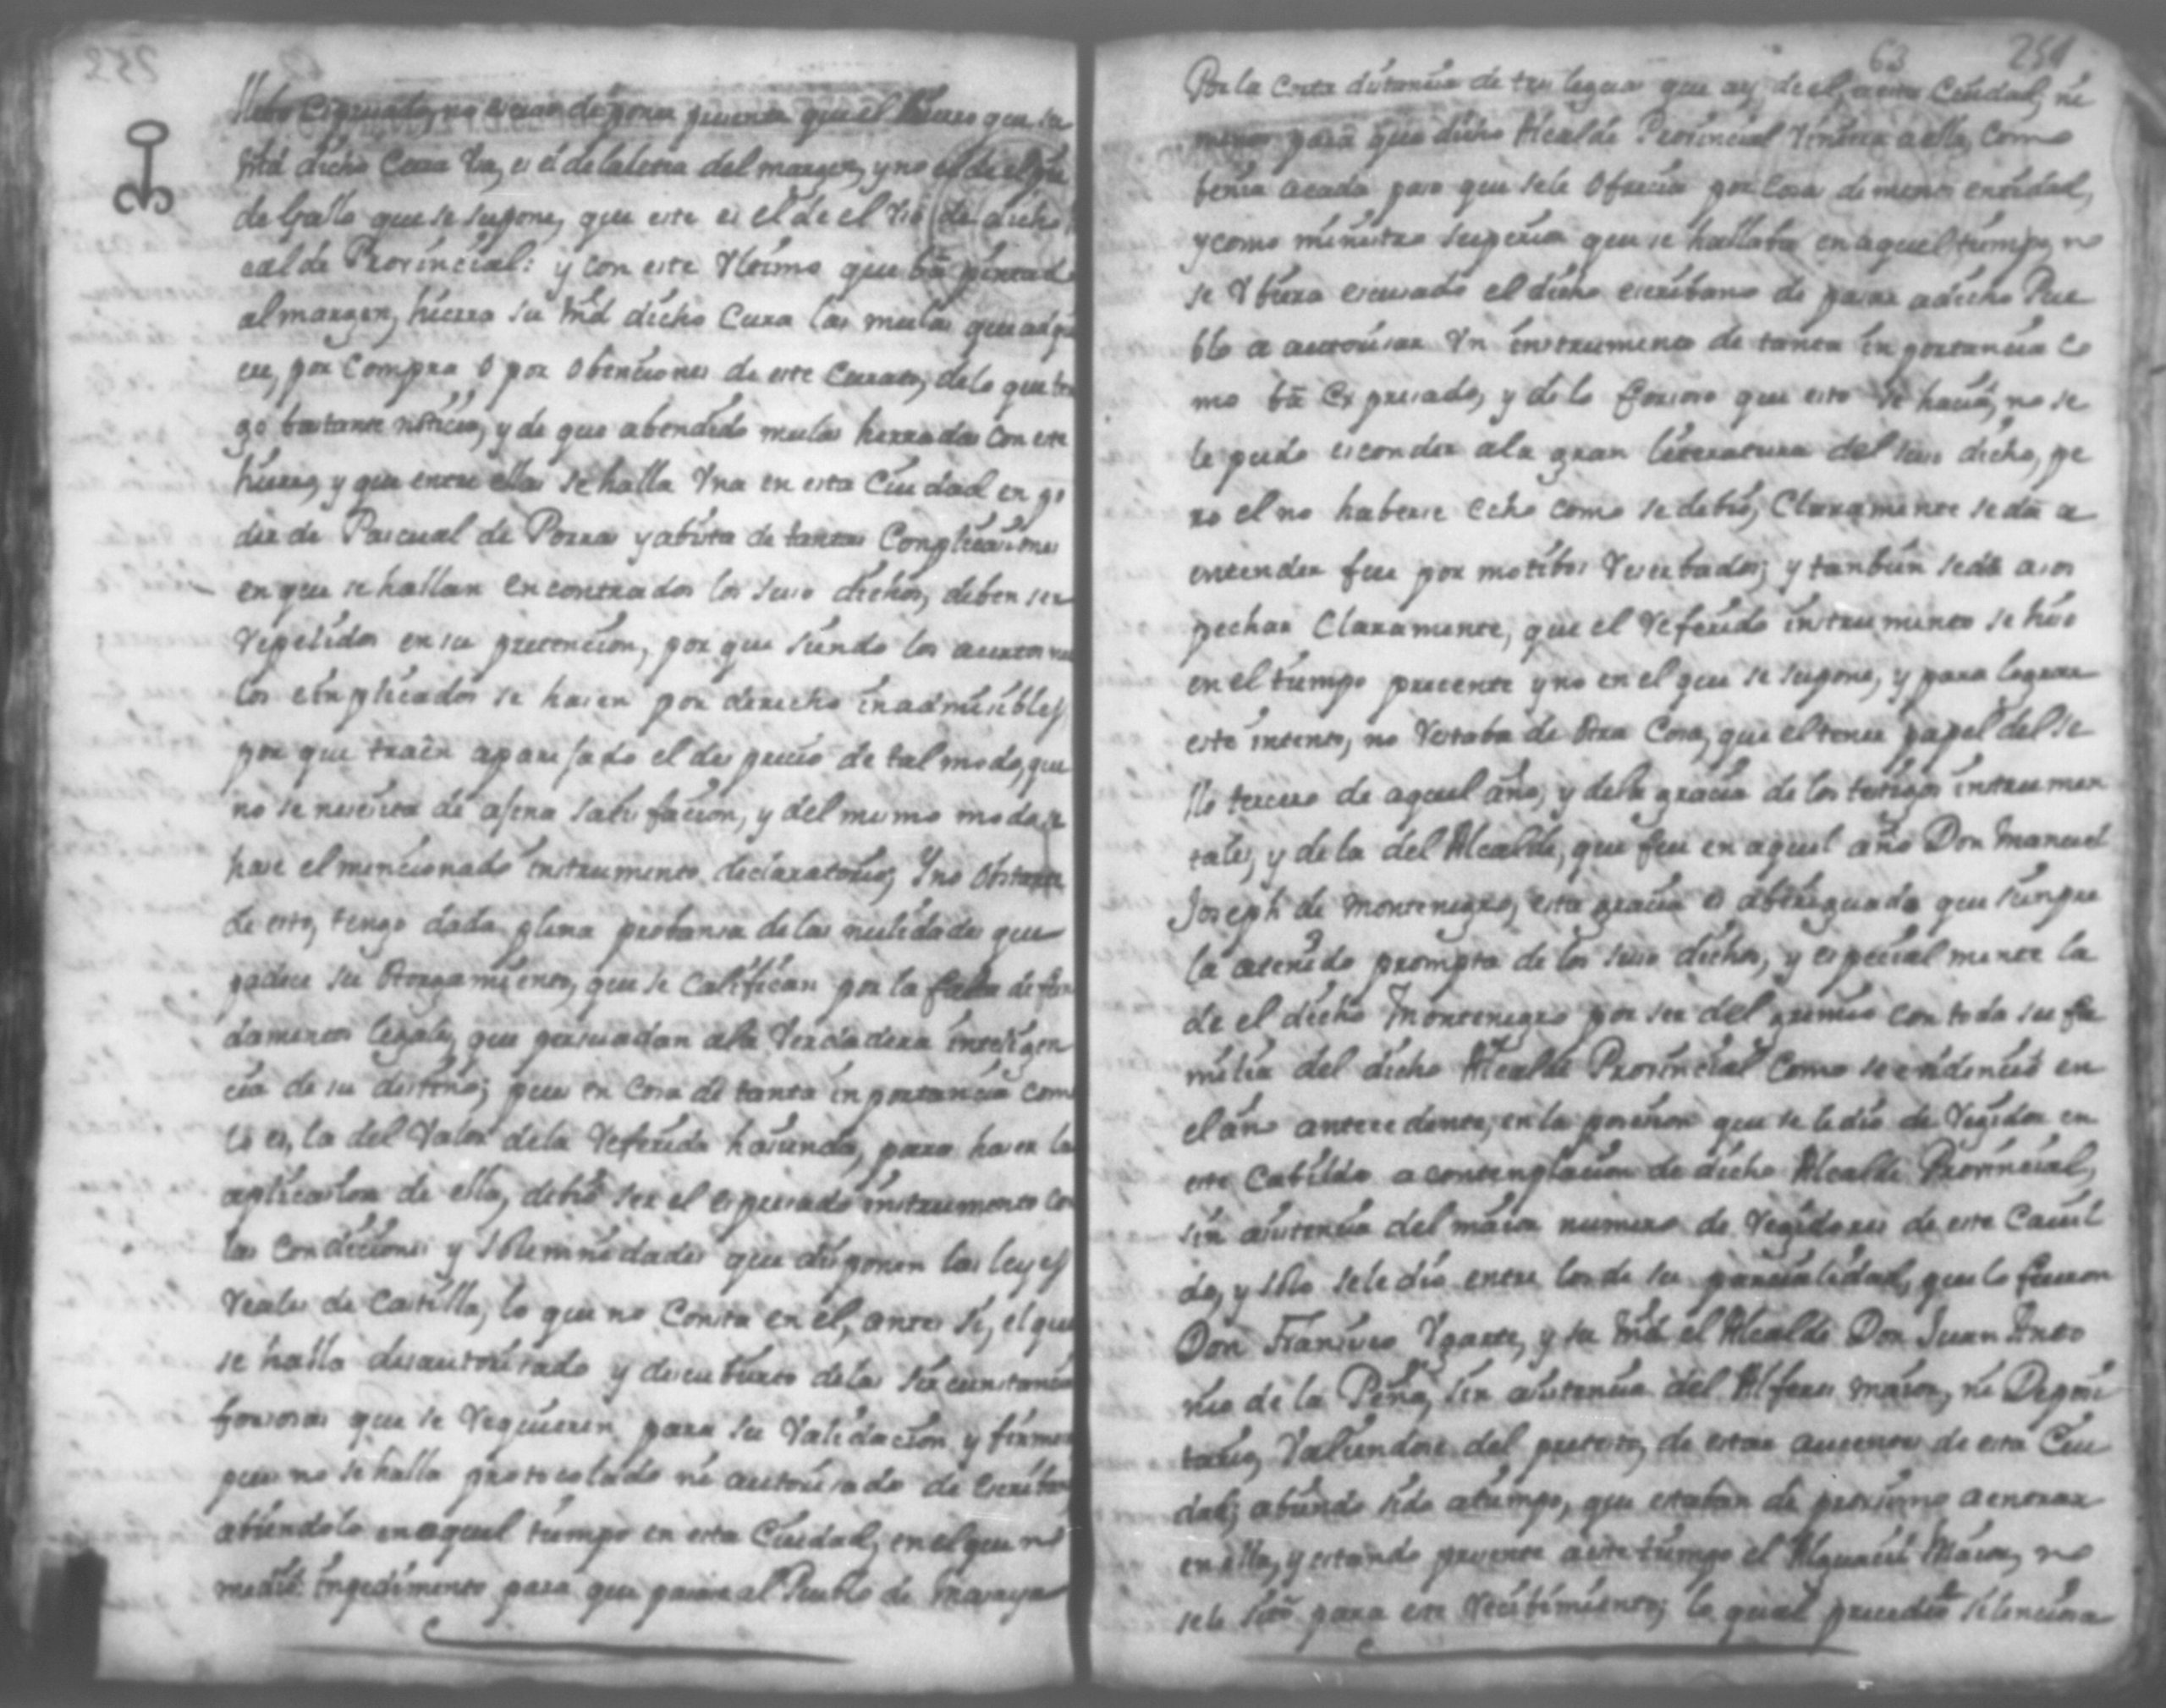 252
dicho Cura Va, es el de la letra del margen, y no el de el pie
de Gallo que se supone, que este es el de el Vso de dicho
calde Provincial: y con este Vltimo que bá pintado
al margen, hierra su Md dicho Cura las mulas que adquie
ere, por Compra o por obenciones de este Curato, de lo que ten
go bastante noticia, y de que a bendido mulas herradas con este
hierro, y que entre ellas se halla Vna en esta Ciudad en po
der de Pascual de Porras y abista de tantas Complicasiones
en que se hallan encontrados los suso dichos, deben ser
Repelidos en su pretencion, por que siendo los
los complicados se hasen por derecho inadmisibles
por que traen aparejado el despresio de tal modo, que
no se nesesita de ajena satisfacion, y del mismo modo se
hase el mencionado instrumento declaratorio; Y no obstante
de esto, tengo dada plena probansa de las nulidades que
padese su Otorgamiento, que se califican por la falta de fun
damentos legales, que persuadan a la Verdadera inteligen
cia de su destino; pues en Cosa de tanta inportancia como
lo es, la del Valor de la Referida hasienda, para haser la
aplicasion de ella, debió ser el expresado instrumento con
las Condiciones y solemnidades que disponen las leyes
Reales de Castilla, lo que no Consta en él, antes si, el que
se halla desautorisado y descubierto de las sircunstancias
forsosas que se Requieren para su Validacion y firmesa
pues no se halla protocolado ni autorisado de Escribano
abiendolo en aquel tiempo en esta Ciudad, en el que no
medió inpedimento para que pasase al Pueblo de Masaya
63 251
Por la Corta distancia de tres leguas que ay de el, a esta Ciudad, ni
menos para que dicho Alcalde Provincial Viniera a ella, como
benia acada paso que sele ofrecia por Cosa de menos entidad,
y como ministro superior que se hallaba en aquel tiempo, no
se Vbiera escusado el dicho escribano de pasar a dicho Pue
blo a autorisar Vn instrumento de tanta inportancia co
mo bá Expresado, y de lo forsoso que esto se hacia, no se
le pudo esconder ala gran literatura del suso dicho, pe
ro el no haberse echo como se debió, Claramente se da a
entender fue por motibos Reserbados; y tanbien se dá a sos
pechar Claramente, que el Referido instrumento se hiso
en el tiempo precente y no en el que se supone, y para lograr
este intento, no Restaba de otra Cosa, que el tener papel del se
llo tercero de aquel año, y de la gracia de los testigos instrumen
tales, y de la del Alcalde, que fue en aquel año Don Manuel
Joseph de Montenegro, esta gracia es aberiguada que sienpre
la atenido prompta de los suso dichos, y especialmente la
de el dicho Montenegro por ser del gremio con toda su fa
milia del dicho Alcalde Provincial Como se evidenció en
el año antecedente, en la posesion que se le dio de Regidor en
este Cabildo a contenplacion de dicho Alcalde Provincial,
sin asistencia del maior numero de Regidores de este Cavil
do, y solo sele dio entre los de su parcialidad, que lo fueron
Don Francisco Ygarte, y su Md el Alcalde Don Juan Anto
nio de la Peña, sin asistencia del Alferes maior, ni Deposi
tario, Valiendose del pretexto, de estar ausentes de esta Ciu
dad; abiendo sido a tiempo, que estaban de proximo a entrar
en ella, y estando presente a este tiempo el Alguacil Maior, no
sele sitó para este Resibimiento; lo qual precedió